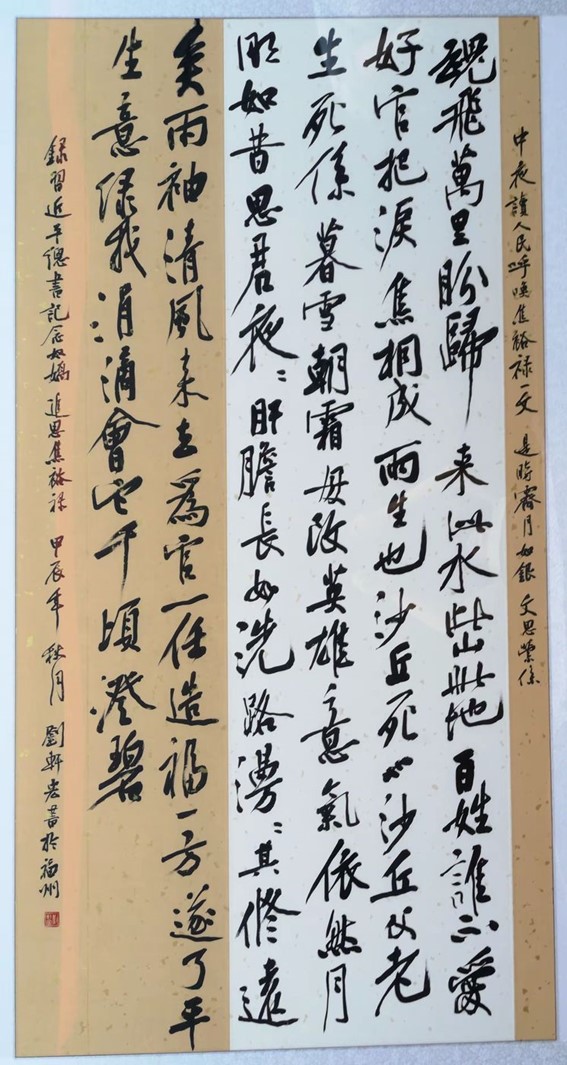 中夜讀人民呼喚焦裕禄一文 是時霽月如銀 文思縈係
魂飛萬里盼歸来此水此山此地百姓誰不愛
好官把淚焦桐成雨生也沙丘死也沙丘父老
生死係暮雪朝霜毋改英雄意氣依然月
明如昔思君夜〻肝膽長如洗路漫〻其修遠
矣兩袖清風来去為官一任造福一方遂了平
生意绿我涓滴會它千頃澄碧
録習近平總書記念奴嬌追思焦裕禄 甲辰年秋月 劉軒宏書於福州